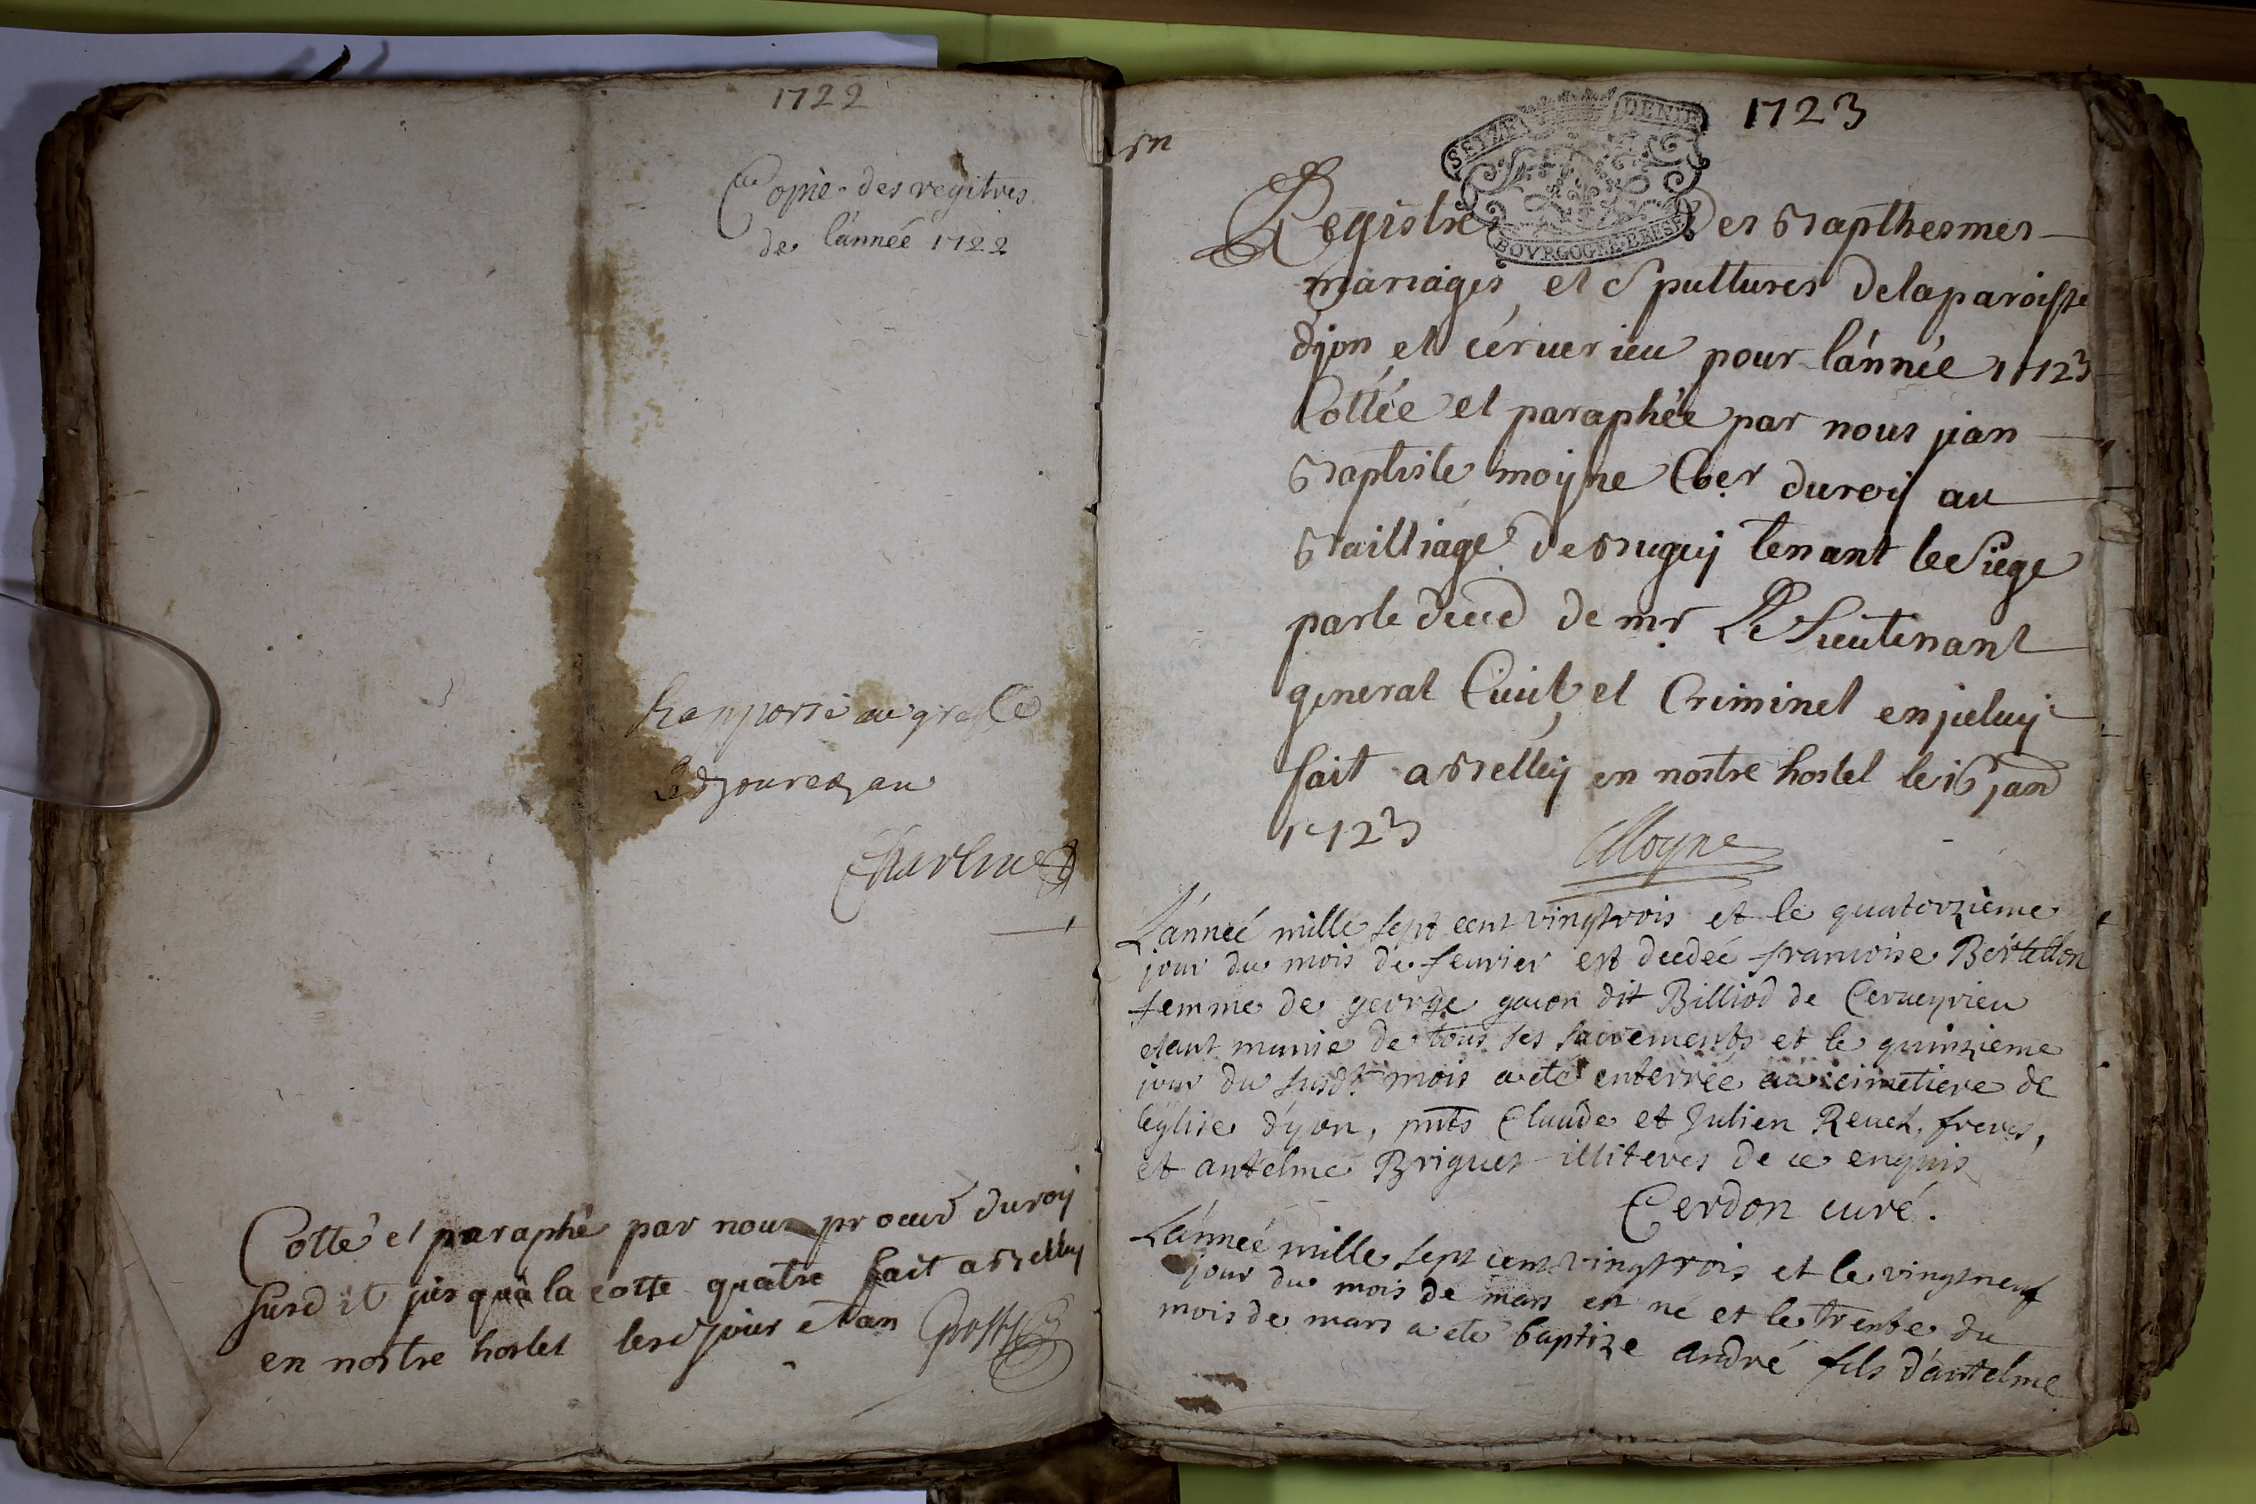 1722
Copie des regitres
de l'année 1722
Rapporté au greffe
Cotté et paraphé par nous procur duroy
susd it jusqua la cotte quatre fait a Belley
en nostre hostel lesd jour et an
1723
SEIZE DENIE
BOVRGOGNE BRESSE
Registre des Bapthesmes
mariages et Spultures delaparoisse
dyon et ceruerieu pour lánnée 1723
Cottée et paraphée par nous jean
Baptiste moyne Coer duroy au
Bailliage de Bugey tenant le Siege
parle deced de mr Le Lieutenant
general Ciuil et Criminel enjceluy
fait a Belley en nostre hostel le 16 jand
1723
Moyne
L'année mille sept cent vingtrois et le quatorzième
jour du mois de feurier est decedeé francoise Bertellon
femme de george gouon dit Billiod de Cerueyrieu
etant munie de tous ses sacrements et le quinzieme
jour du susdt mois a eté enterrée au cimetiere de
léglise d'yon, pnts Claude et Julien Reuel freres,
et antelme Briguet illiteres de ce enquis
Cerdon curé.
L'année mille sept cent vingtrois et le vingtneuf
jour du mois de mars est né et le trente du
mois de mars a eté baptize andré fils d'antelme